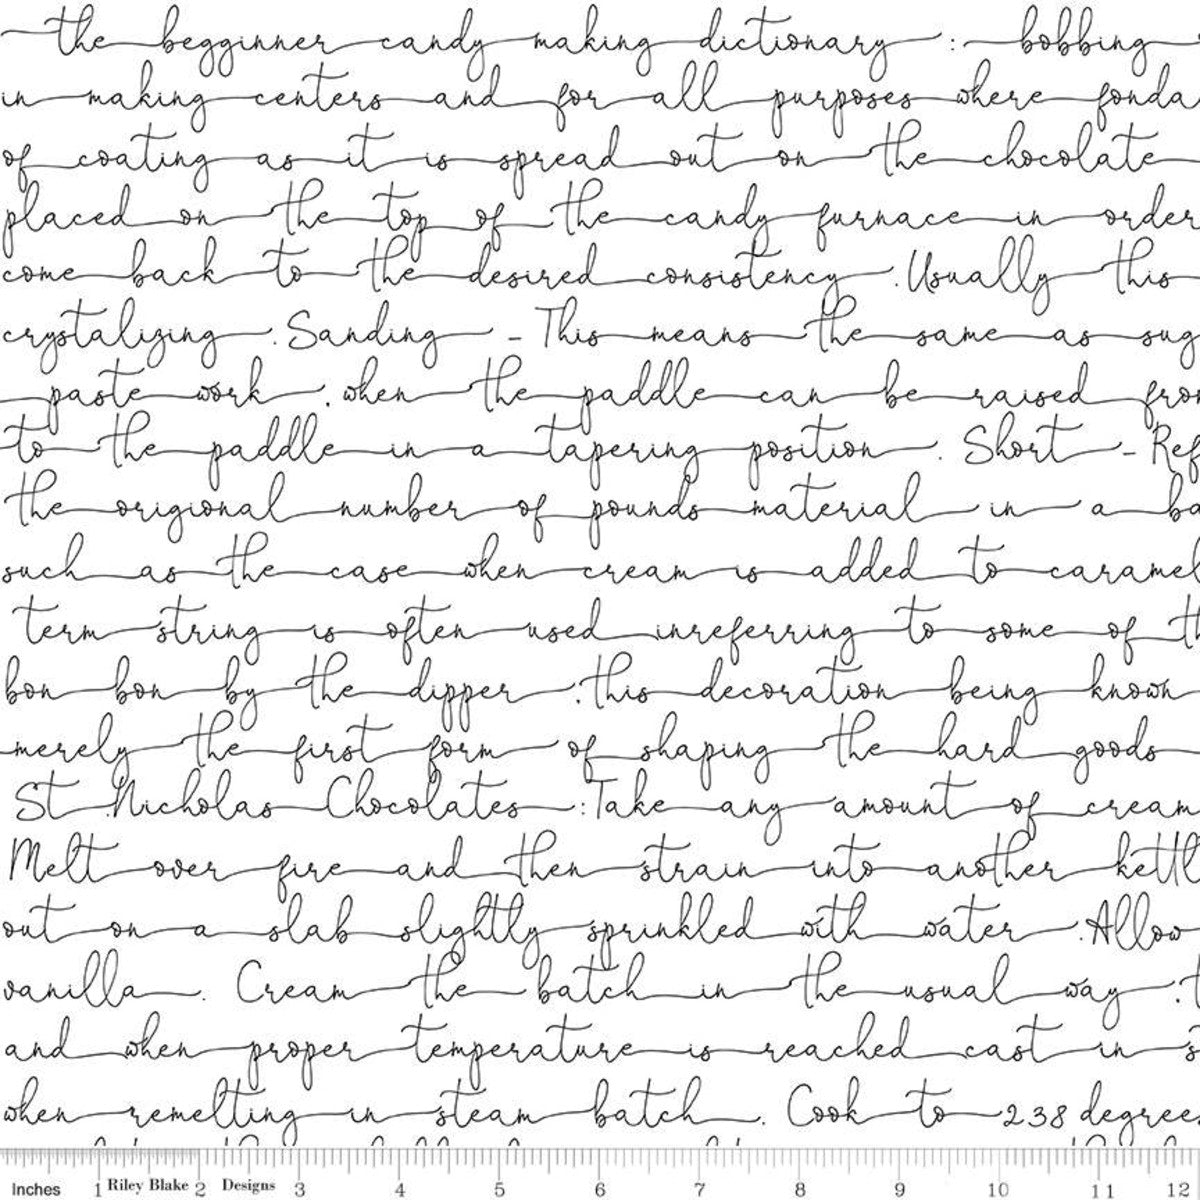 the begginner candy making dictionary : bobbing
in making centers and for all purposes where fonda
of coating as it is spread out on the chocolate
placed on the top of the candy furnace in order
come back to the desired consistency . Usually this
crystalizing . Sanding - This means the same as sug
paste work . when the paddle can be raised from
to the paddle in a tapering position . Short - Ref
the origional number of pounds material in a ba
such as the case when cream is added to caramel
term string is often used inreferring to some of th
bon bon by the dipper . this decoration being known
merely the first form of shaping the hard goods
St .Nicholas Chocolates :Take any amount of cream
Melt over fire and then strain into another kettl
out on a slab slightly sprinkled with water .Allow
vanilla . Cream the batch in the usual way . t
and when proper temperature is reached cast in s
when remelting in steam batch . Cook to 238 degrees
Inches 1 Riley Blake 2 Designs 3 4 5 6 7 8 9 10 11 12